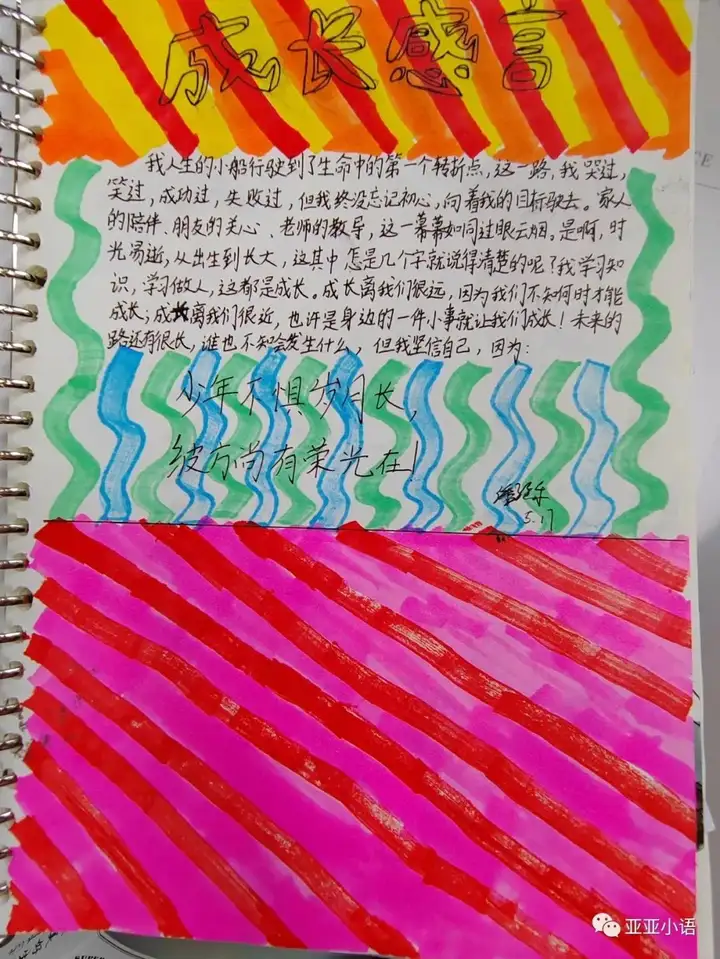 成长感言
我人生的小船行驶到了生命中的第一个转折点，这一路，我哭过，
笑过，成功过，失败过，但我终没忘记初心，向着我的目标驶去。家人
的陪伴、朋友的关心、老师的教导，这一幕幕如同过眼云烟。是啊，时
光易逝，从出生到长大，这其中怎是几个字就说得清楚的呢？我学习知
识，学习做人，这都是成长。成长离我们很远，因为我们不知何时才能
成长；成长离我们很近，也许是身边的一件小事就让我们成长！未来的
路还有很长，谁也不知会发生什么，但我坚信自己，因为：
少年不惧岁月长，
彼方尚有荣光在！
5.17
亚亚小语